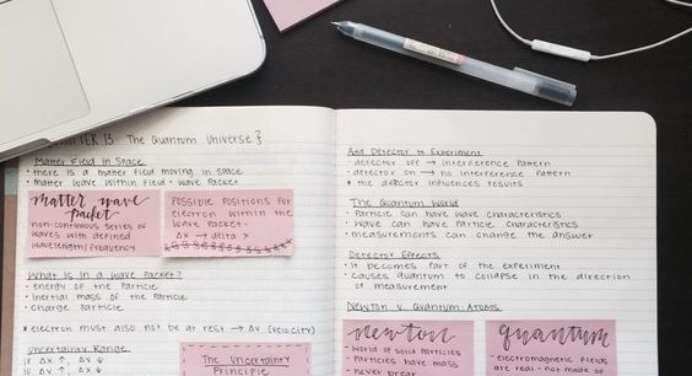 TER 13: The Quantum Universe }
Matter Field in Space
• there is a matter field moving in space
• matter wave within field - wave packet
matter wave
packet
non-continuous series of
waves with defined
wavelength/frequency
possible positions for
electron within the
wave packet.
Δx → delta x
What is in a wave packet?
• energy of the particle
• inertial mass of the particle
• charge particle
* electron must also not be at rest → Δv (velocity)
Uncertainty Range
if Δx ↑, Δv ↓
if Δx ↓, Δv ↑
The Uncertainty
Principle
Add Detector to Experiment
• detector off → interference pattern
• detector on → no interference pattern
* the detector influences results
The Quantum World
• particle can have wave characteristics
• wave can have particle characteristics
• measurements can change the answer
Detector Effects
• it becomes part of the experiment
• causes quantum to collapse in the direction
of measurement
Newton v. Quantum Atoms
newton
- world of solid particles
- particles have mass
never break
quantum
- electromagnetic fields
are real - not made of